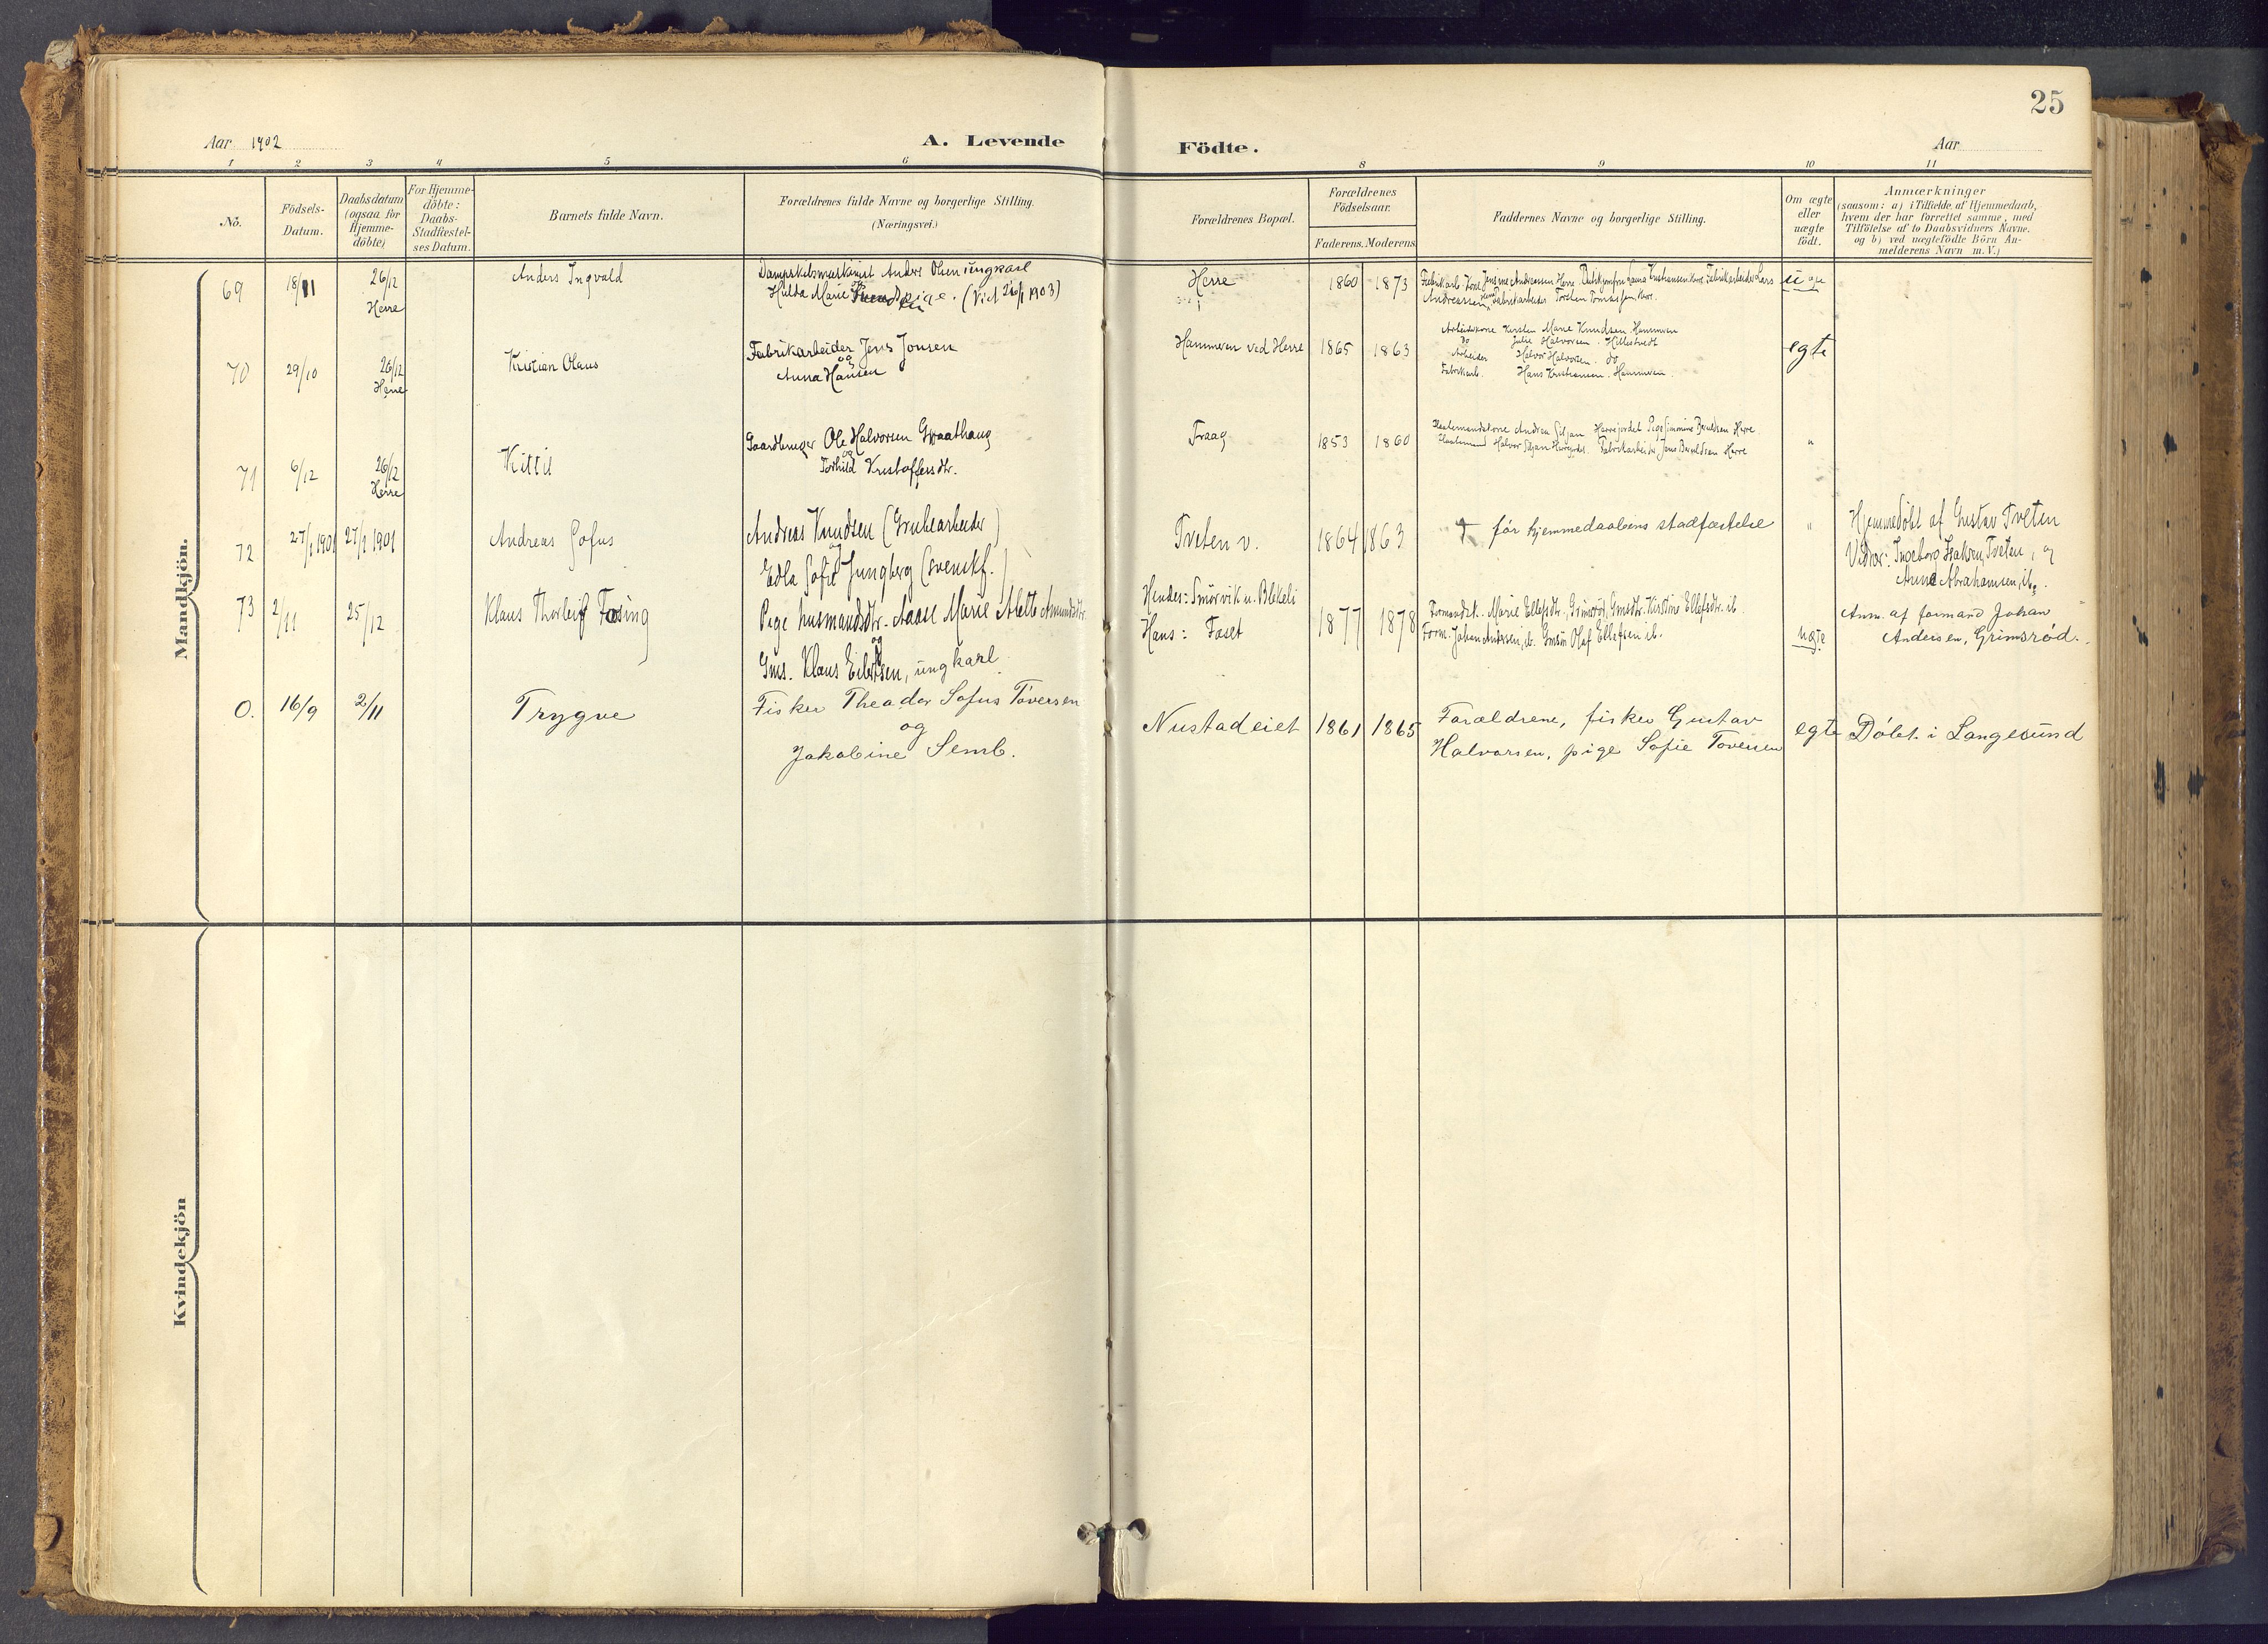 25
Aar 1902
A. Levende Födte.
Aar
1 2 3 4 5 6 8 9 10 11
No.
Födsels-Datum.
Daabsdatum (ogsaa for Hjemme-döbte)
For Hjemme-döbte: Daabs-Stadfæstel-ses Datum.
Barnets fulde Navn.
Forældrenes fulde Navne og borgerlige Stilling.
(Næringsvei.)
Forældrenes Bopæl.
Forældrenes Födselsaar.
Faderens. Moderens.
Faddernes Navne og borgerlige Stilling.
Om ægte eller uægte födt.
Anmærkninger
(saasom: a) i Tilfælde af Hjemmedaab,
hvem der har forrettet samme, med
Tilföielse af to Daabsvidners Navne.
og b) ved uægtefödte Börn An-
melderens Navn m.V.)
Mandkjön.
69 18/11 26/12 Herre Anders Ingvald
Anders Olsen ungkarl
Hulda Marie pige. (Viet 26/1 1903)
Herre 1860 1873
Andreassen Herre Fabrikarbeider Lars
Andreassen Fabrikarbeider
70 29/10 26/12 Herre Kristian Olaus
Fabrikarbeider Jens Jonsen
og
Anna Hansen
Hammeren ved Herre 1865 1863
Arbeiderkone Kirsten Marie Knudsen. Hammeren
Do Julie Halvorsen. Hillestvedt
Arbeider Halvor Halvorsen. do
Fabrikarb. Hans Kristiansen. Hammeren.
egte
71 6/12 26/12 Herre Kittil
Gaardbruger Ole Halvorsen Graathaug
og
Torhild Kristoffersdtr.
Traag 1853 1860
Andrea Siljan Herregjordet Pige Herre.
Halvor Siljan Fabrikarbeider Jens Herre
"
72 27/1 1901 27/1 1901 Andreas Sofus
Andreas Knudsen (Grubearbeider)
og
Edla Sofie Jungberg (svenskf.)
Tveten v. 1864 1863
† før hjemmedaabens stadfæstelse
"
Hjemmedöbt af Gustav Tveten
Vidner: Ingeborg Tveten, og
Anne Abrahamsen, ib.
73 2/11 25/12 Klaus Thorleif Fosing
Pige husmandsdtr. Aase Marie Alette Amundsdtr.
og
Gms. Klaus Eilertsen, ungkarl
Hendes: Smørvik u. Blekeli
Hans: Foset
1877 1878
Formandsk. Marie Ellefsdtr., Grimsrød, Gmsdtr. Kirstine Ellefsdtr. ib.
Form. Johan Andersen, ib. Gmsøn Olaf Ellefsen ib.
uægte
Anm. af formand Johan
Andersen, Grimsrød.
0. 16/9 2/11 Trygve
Fisker Theodor Sofus Töversen
og
Jakobine Semb.
Nustadeiet 1861 1865
Forældrene, fisker Gustav
Halvorsen, pige Sofie Töversen
egte Döbt i Langesund
Kvindekjön